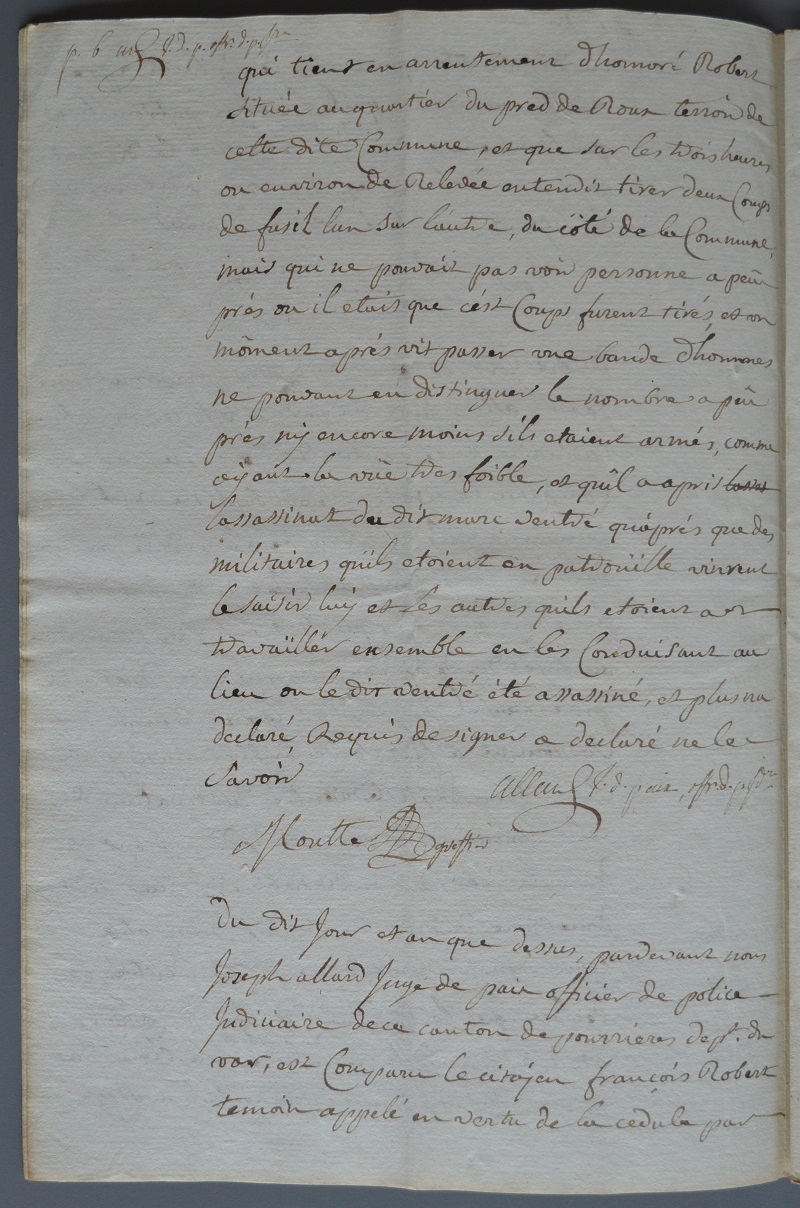 p. 6
qui tient en arrentement d'homoré Robert
située au quartier du pred de Roux terroir de
cette dite Commune, et que sur les trois heures
ou environ de Relevée entendit tirer deux Coups
de fusil l'un sur l'autre, du côté de la Commune,
mais qui ne pouvait pas voir personne a peu
prés ou il etait que cést Coups furent tirés, et un
môment aprés vit passer une bande d'hommes
ne pouvant en distinguer le nombre a peu
prés ny encore moins s'ils etaient armés, comme
ayant la vuë tres foible, et qu'il a apris
l'assassinat du dit marc ventré qu'aprés que des
militaires qu'ils etoient en patroüille vinrent
le saisir luy et les autres qu'ils etoient a
travaïller ensemble en les Conduisant au
lieu ou le dit ventré été assassiné, et plus na
declaré, Requis de signer a declaré ne le
Savoir
allard J. d. paix, offr. d. p. jdre
Moutte greffier
Du dit Jour et an que dessus, pardevant nous
Joseph allard Juge de paix officier de police
Judiciaire de ce canton de pourrieres dept. du
var, est Comparu le citoyen françois Robert
temoin appelé en vertu de la cedule par